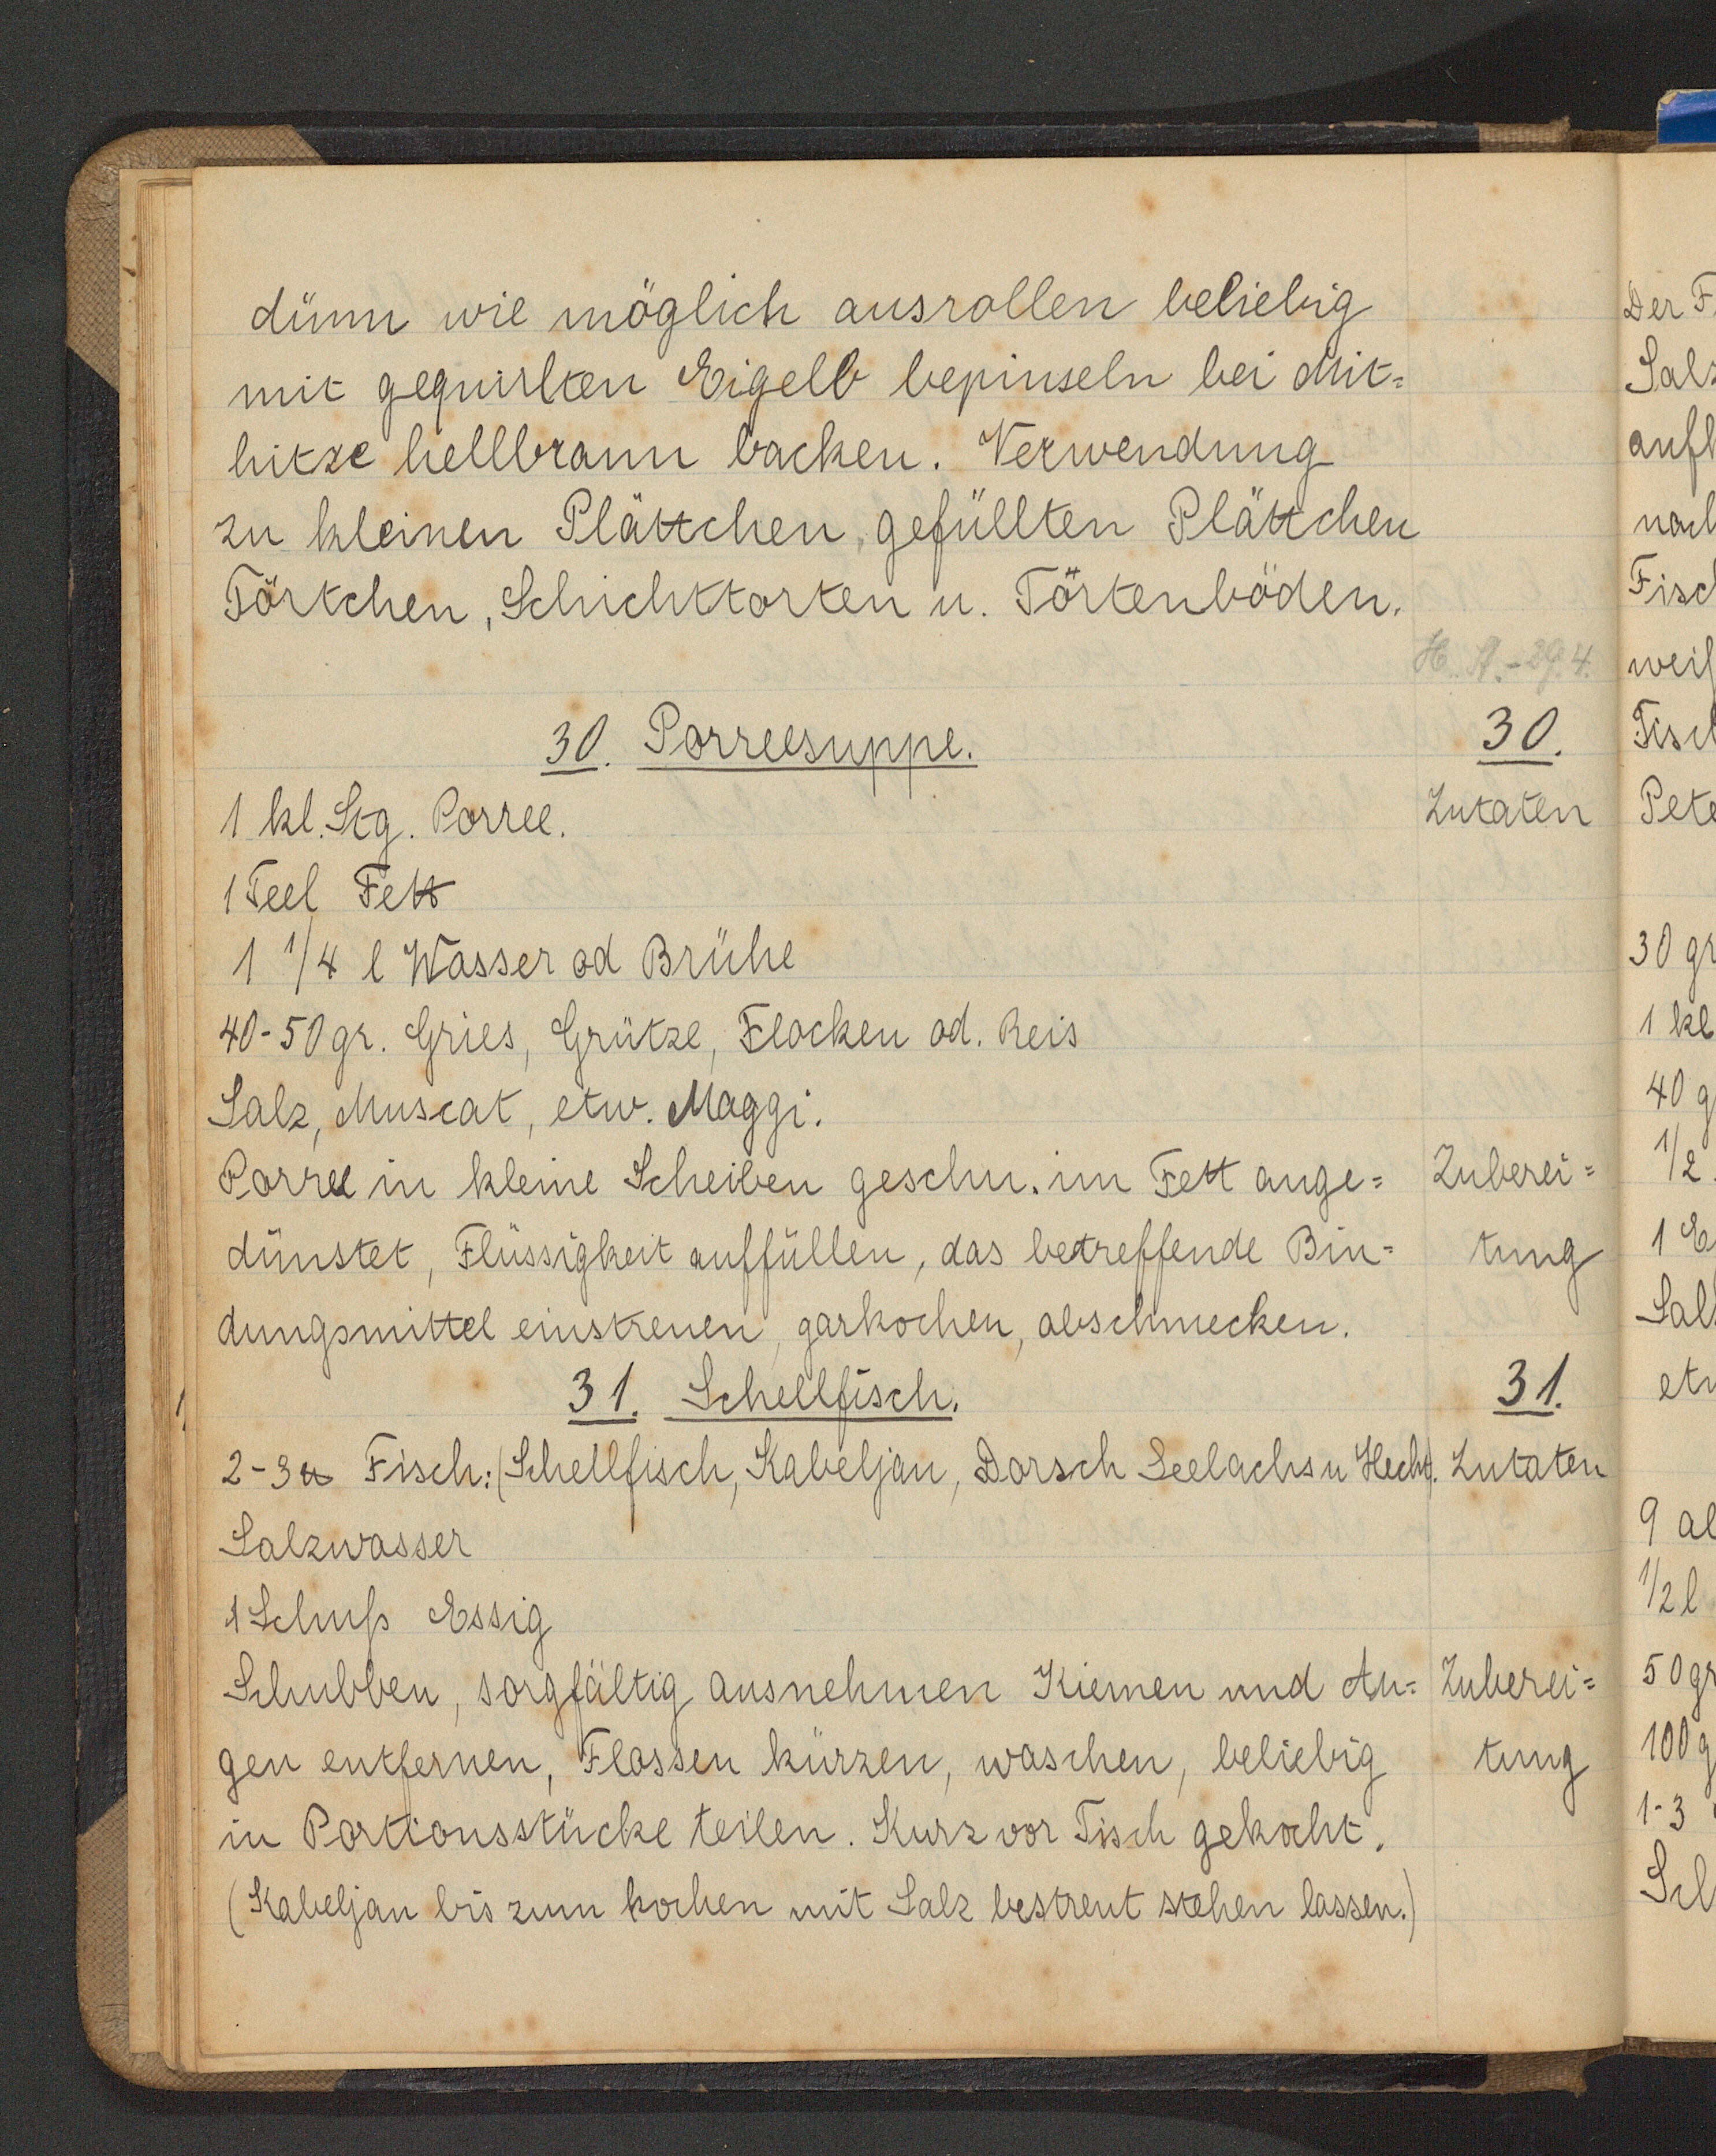 dünn wie möglich ausrollen beliebig
mit gequirlten Eigelb bepinseln bei Mit=
hitze hellbraun backen. Verwendung
zu kleinen Plättchen, gefüllten Plättchen
Törtchen, Schichttorten u. Törtenböden.
H. A. - 29.4.
30. Porreesuppe. 30.
1 kl. Stg. Porree. Zutaten
1 Teel Fett
1 1/4 l Wasser od Brühe
40-50 gr. Gries, Grütze, Flocken od. Reis
Salz, Muscat, etw. Maggi.
Porree in kleine Scheiben geschn. im Fett ange= Zuberei=
dünstet, Flüssigkeit auffüllen, das betreffende Bin= tung
dungsmittel einstreuen, garkochen, abschmecken.
31. Schellfisch. 31.
2-3 ℔ Fisch: (Schellfisch, Kabeljau, Dorsch Seelachs u Hecht). Zutaten
Salzwasser
1 Schuß Essig
Schubben, sorgfältig ausnehmen Kiemen und Au= Zuberei=
gen entfernen, Flossen kürzen, waschen, beliebig tung
in Portionsstücke teilen. Kurz vor Tisch gekocht.
(Kabeljau bis zum kochen mit Salz bestreut stehen lassen.)
Der F
Salz
aufk
nach
Fisch
weiß
Fisch
Pete
30 gr
1 kl
40 g
1/2
1 E
Salz
etw
9 al
1/2 l
50 gr
100 g
1-3